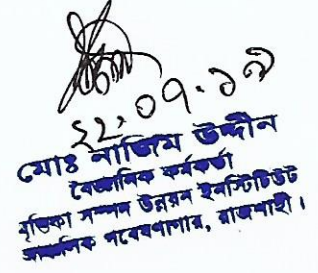 ২২.০৭.১৯
মোঃ নাজিম উদ্দীন
বৈজ্ঞানিক কর্মকর্তা
মৃত্তিকা সম্পদ উন্নয়ন ইনস্টিটিউট
আঞ্চলিক গবেষণাগার, রাজশাহী।